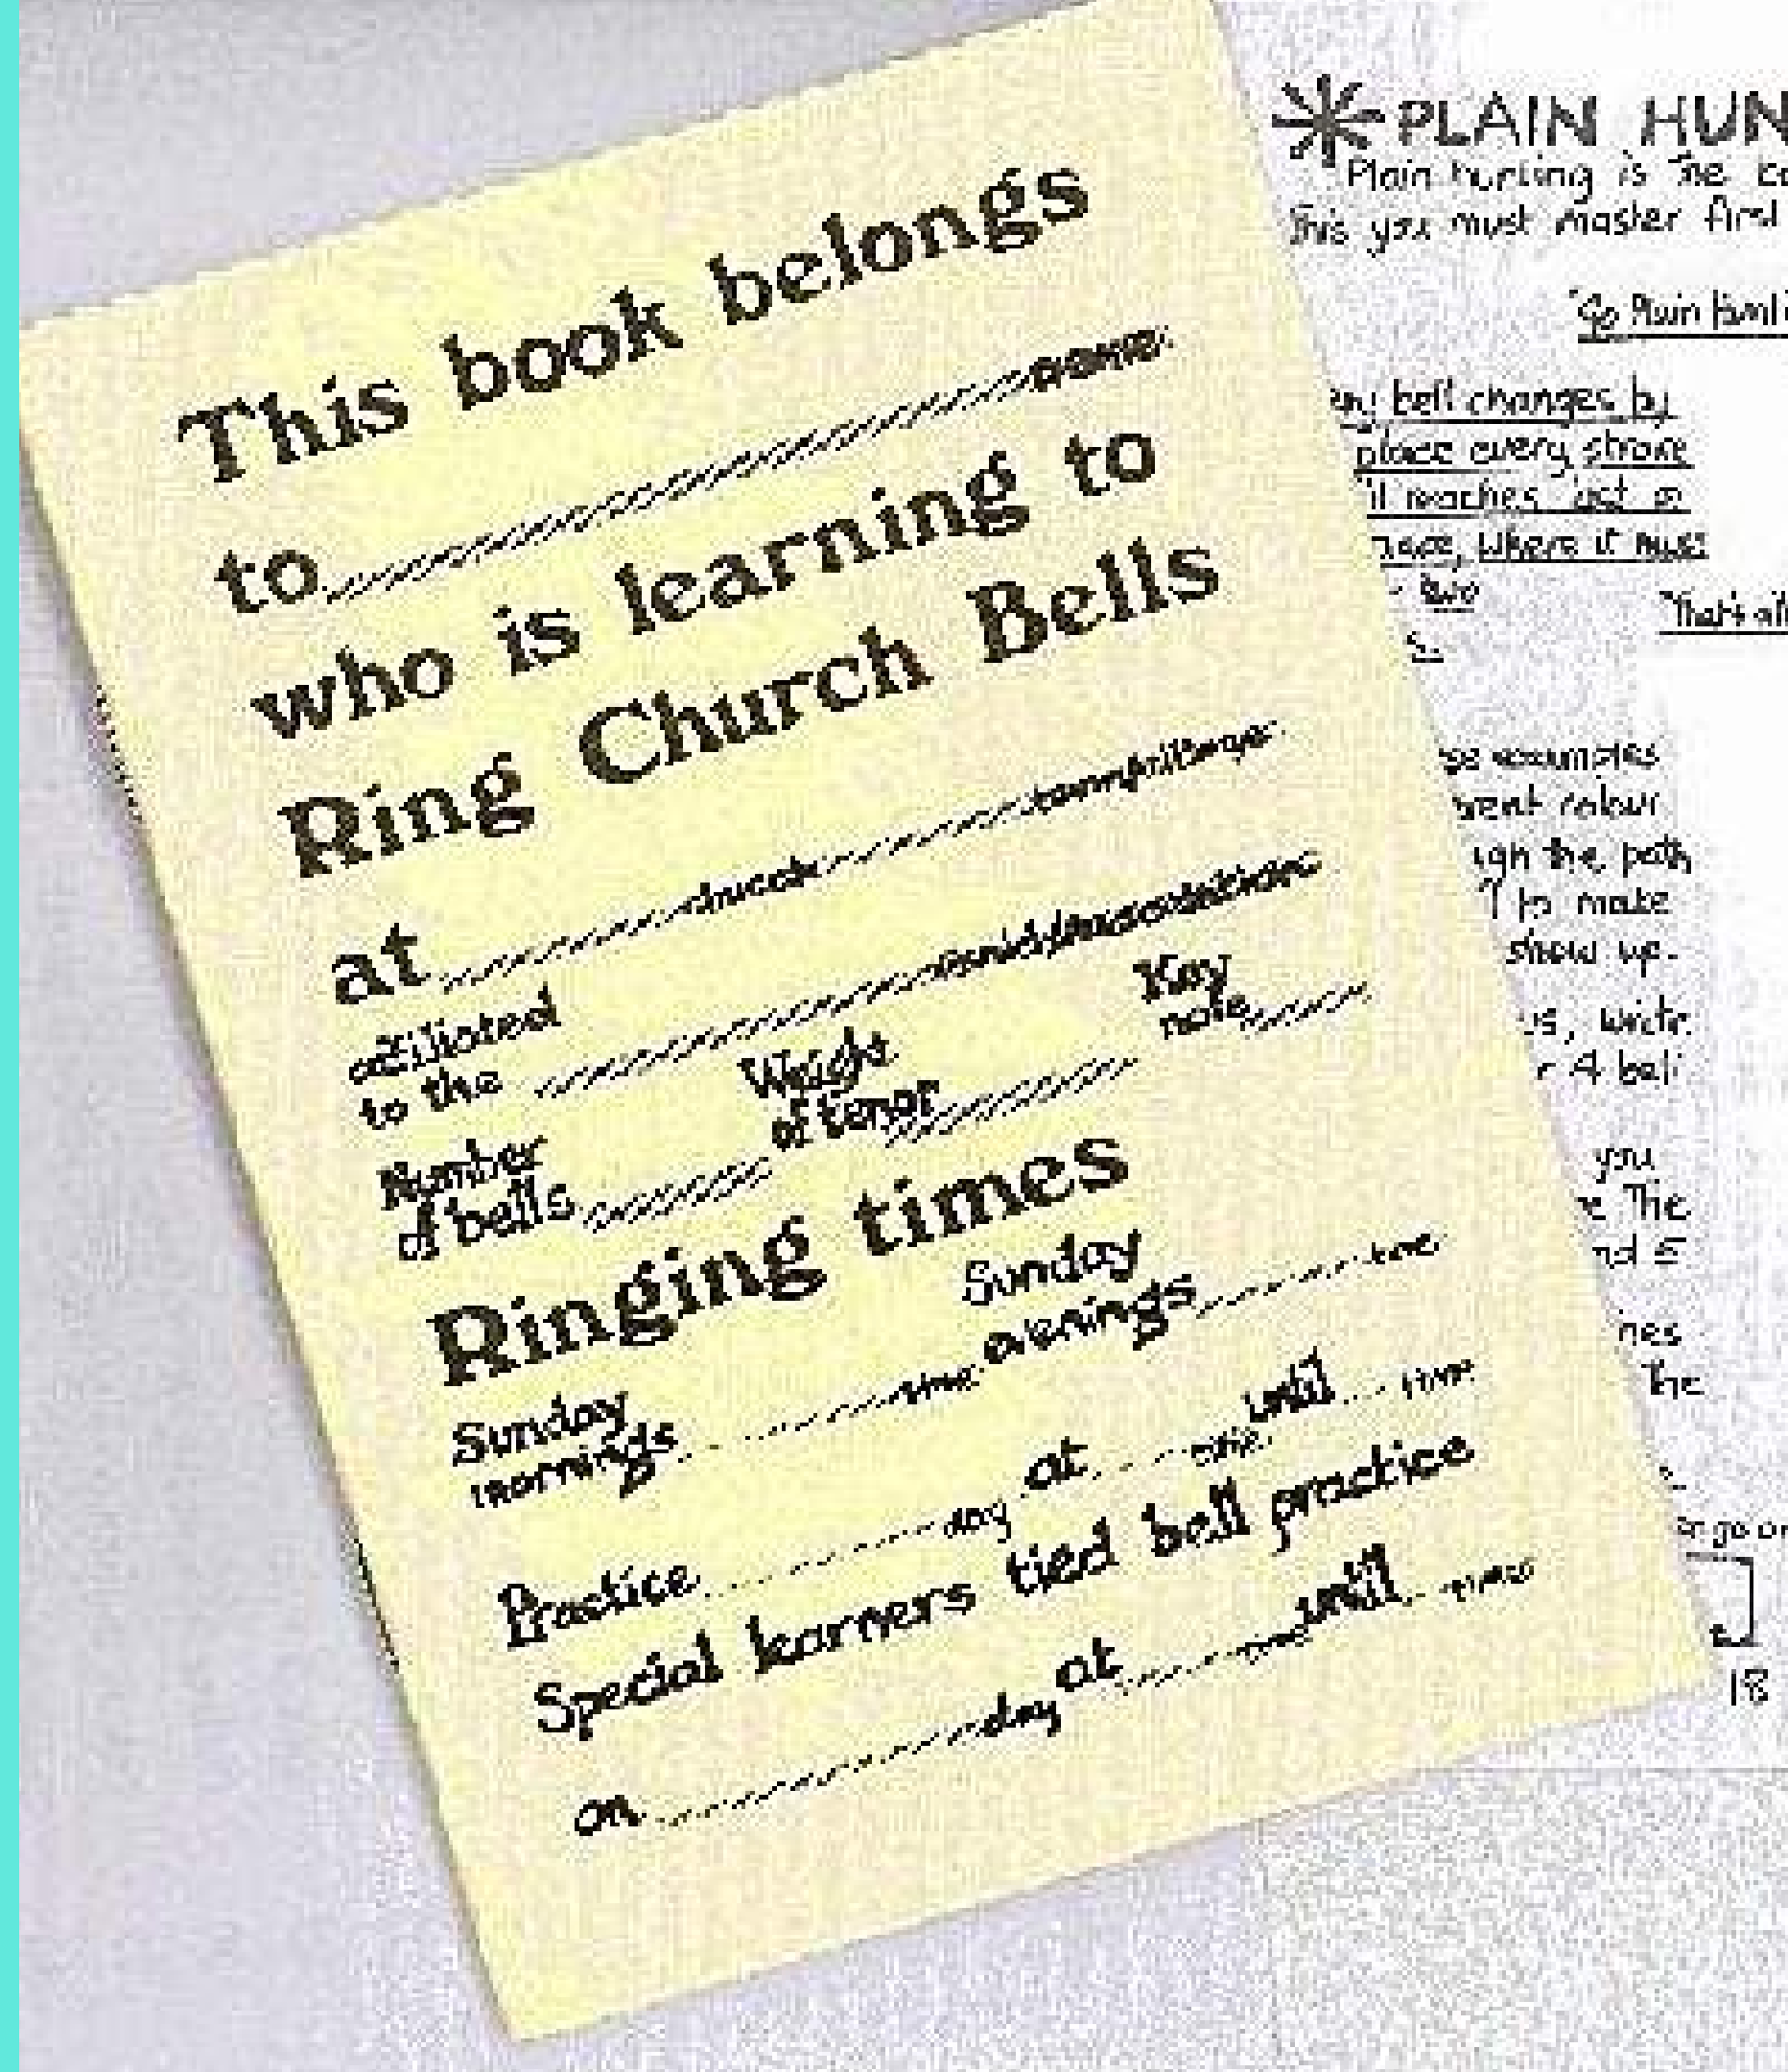 This book belongs
to name
who is learning to
Ring Church Bells
at church town/village
affiliated
to the Guild/Association
Number
of bells
Weight
of tenor
Key
note
Ringing times
Sunday
mornings time
Sunday
evenings time
Practice day at time until time
Special learners tied bell practice
on day at time until time
PLAIN HUN
Plain hunting is the
This you must master first
"Go Plain Hunti
bell changes by
place every stroke
it reaches last or
where it must
two
"That's all
colour
the path
to make
show up.
us, write
4 bell
you
The
5
nes
the
go
18